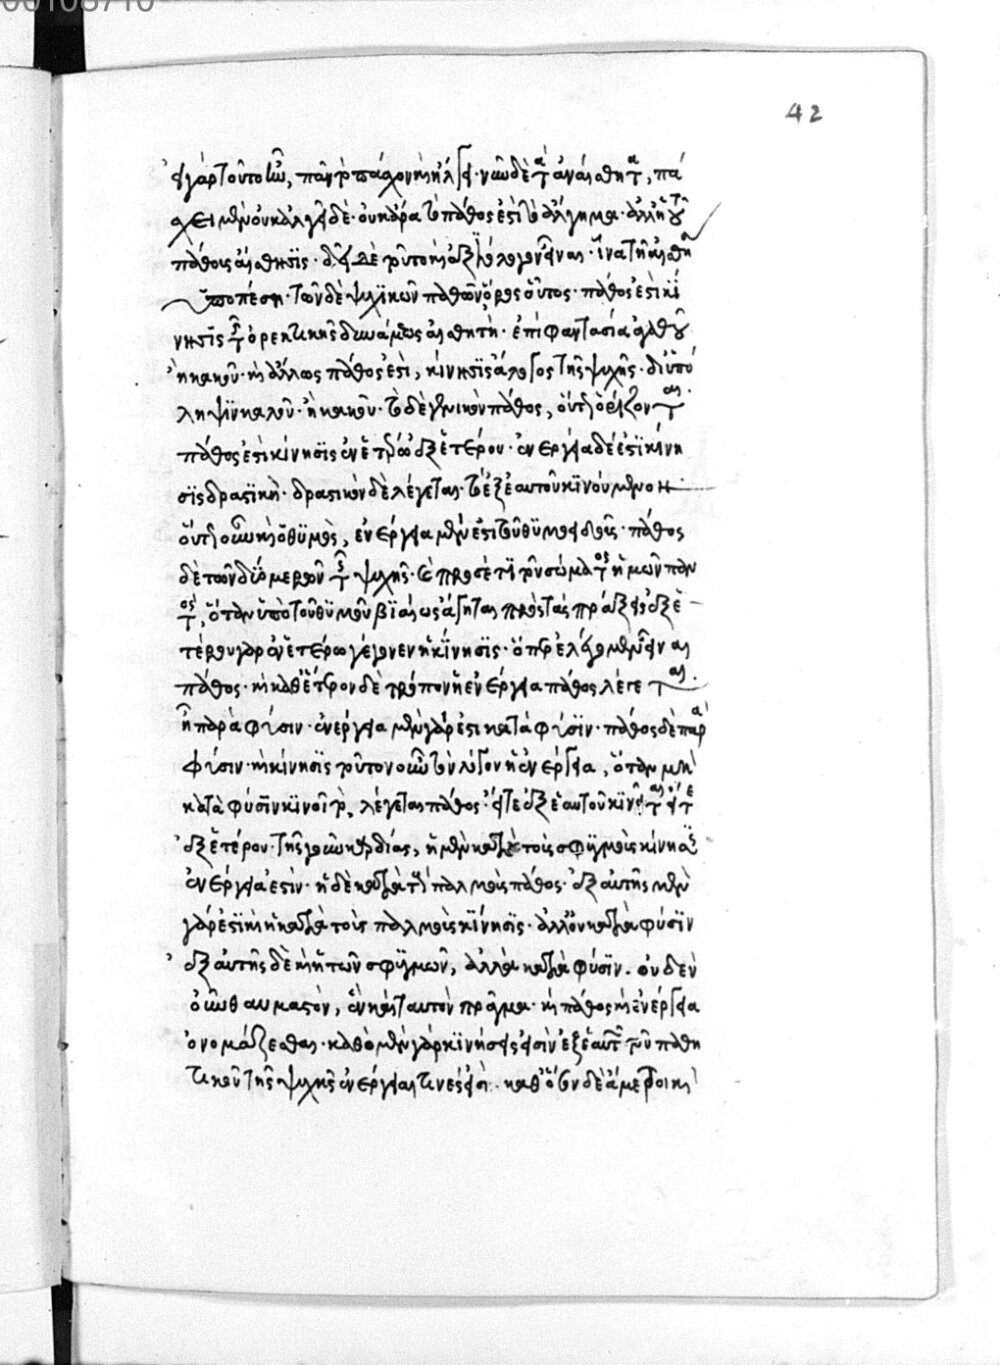 42
εἰ γὰρ τοῦτο ἦν, πᾶν τὸ πάσχον καὶ ἤλγει· νῦν δὲ τὰ ἀναίσθητα, πά
σχει μὲν οὐκ ἀλγεῖ δέ· οὐκ ἄρα τὸ πάθος ἐστὶ τὸ ἄλγημα· ἀλλ' ἡ τοῦ
πάθους αἴσθησις· δεῖ δὲ τοῦτο καὶ ἀξιόλογον εἶναι· ἵνα τῇ αἰσθή
ὑποπέσῃ· τῶν δὲ ψυχικῶν παθῶν ὅρος οὗτος· πάθος ἐστὶ κί
νησις τῆς ὀρεκτικῆς δυνάμεως αἰσθητή· ἐπὶ φαντασίᾳ ἀγαθοῦ
ἢ κακοῦ· καὶ ἄλλως πάθος ἐστὶ, κίνησις ἄλογος τῆς ψυχῆς· δι' ὑπό
ληψιν καλοῦ· ἢ κακοῦ· τὸ δὲ γενικὸν πάθος, οὕτως ὁρίζονται·
πάθος ἐστὶ κίνησις ἐν ἑτέρῳ ἐξ ἑτέρου· ἐνέργεια δέ ἐστι κίνη
σις δραστικὴ· δραστικὸν δὲ λέγεται· τὸ ἐξ ἑαυτοῦ κινούμενον·
οὕτως οὖν καὶ ὁ θυμὸς, ἐνέργεια μέν ἐστι τοῦ θυμοειδοῦς· πάθος
δὲ τῶν δύο μερῶν τῆς ψυχῆς· καὶ προσέτι τοῦ σώματος ἡμῶν παν
τός, ὅταν ὑπὸ τοῦ θυμοῦ βιαίως ἄγηται πρὸς τὰς πράξεις ἐξ ἑ
τέρου γὰρ ἐν ἑτέρῳ γέγονεν ἡ κίνησις· ὅπερ ἐλέγομεν εἶναι
πάθος· καὶ καθ' ἕτερον δὲ τρόπον ἡ ἐνέργεια πάθος λέγεται·
ἢ παρὰ φύσιν· ἐνέργεια μὲν γάρ ἐστι κατὰ φύσιν· πάθος δὲ παρὰ
φύσιν· κατὰ τοῦτον οὖν τὸν λόγον ἡ ἐνέργεια, ὅταν μὴ
κατὰ φύσιν κινοῖτο, λέγεται πάθος· εἴτε ἐξ ἑαυτοῦ κινεῖται εἴτε
ἐξ ἑτέρου· τῆς γοῦν καρδίας, ἡ μὲν κατὰ τοὺς σφυγμοὺς κίνησις
ἐνέργειά ἐστιν· ἡ δὲ κατὰ τοὺς παλμοὺς πάθος· ἐξ αὐτῆς μὲν
γάρ ἐστι καὶ ἡ κατὰ τοὺς παλμοὺς κίνησις· ἀλλ' οὐ κατὰ φύσιν
ἐξ αὐτῆς δὲ καὶ ἡ τῶν σφυγμῶν, ἀλλὰ κατὰ φύσιν. οὐδὲν
οὖν θαυμαστὸν, εἰ καὶ ταυτὸν πρᾶγμα· καὶ πάθος καὶ ἐνέργεια
ὀνομάζεσθαι· καθὸ μὲν γὰρ κινήσεις εἰσὶν ἐξ αὐτοῦ τοῦ παθη
τικοῦ τῆς ψυχῆς ἐνέργειαι τινές εἰσι· καθ' ὅσον δὲ ἄμετροι καὶ